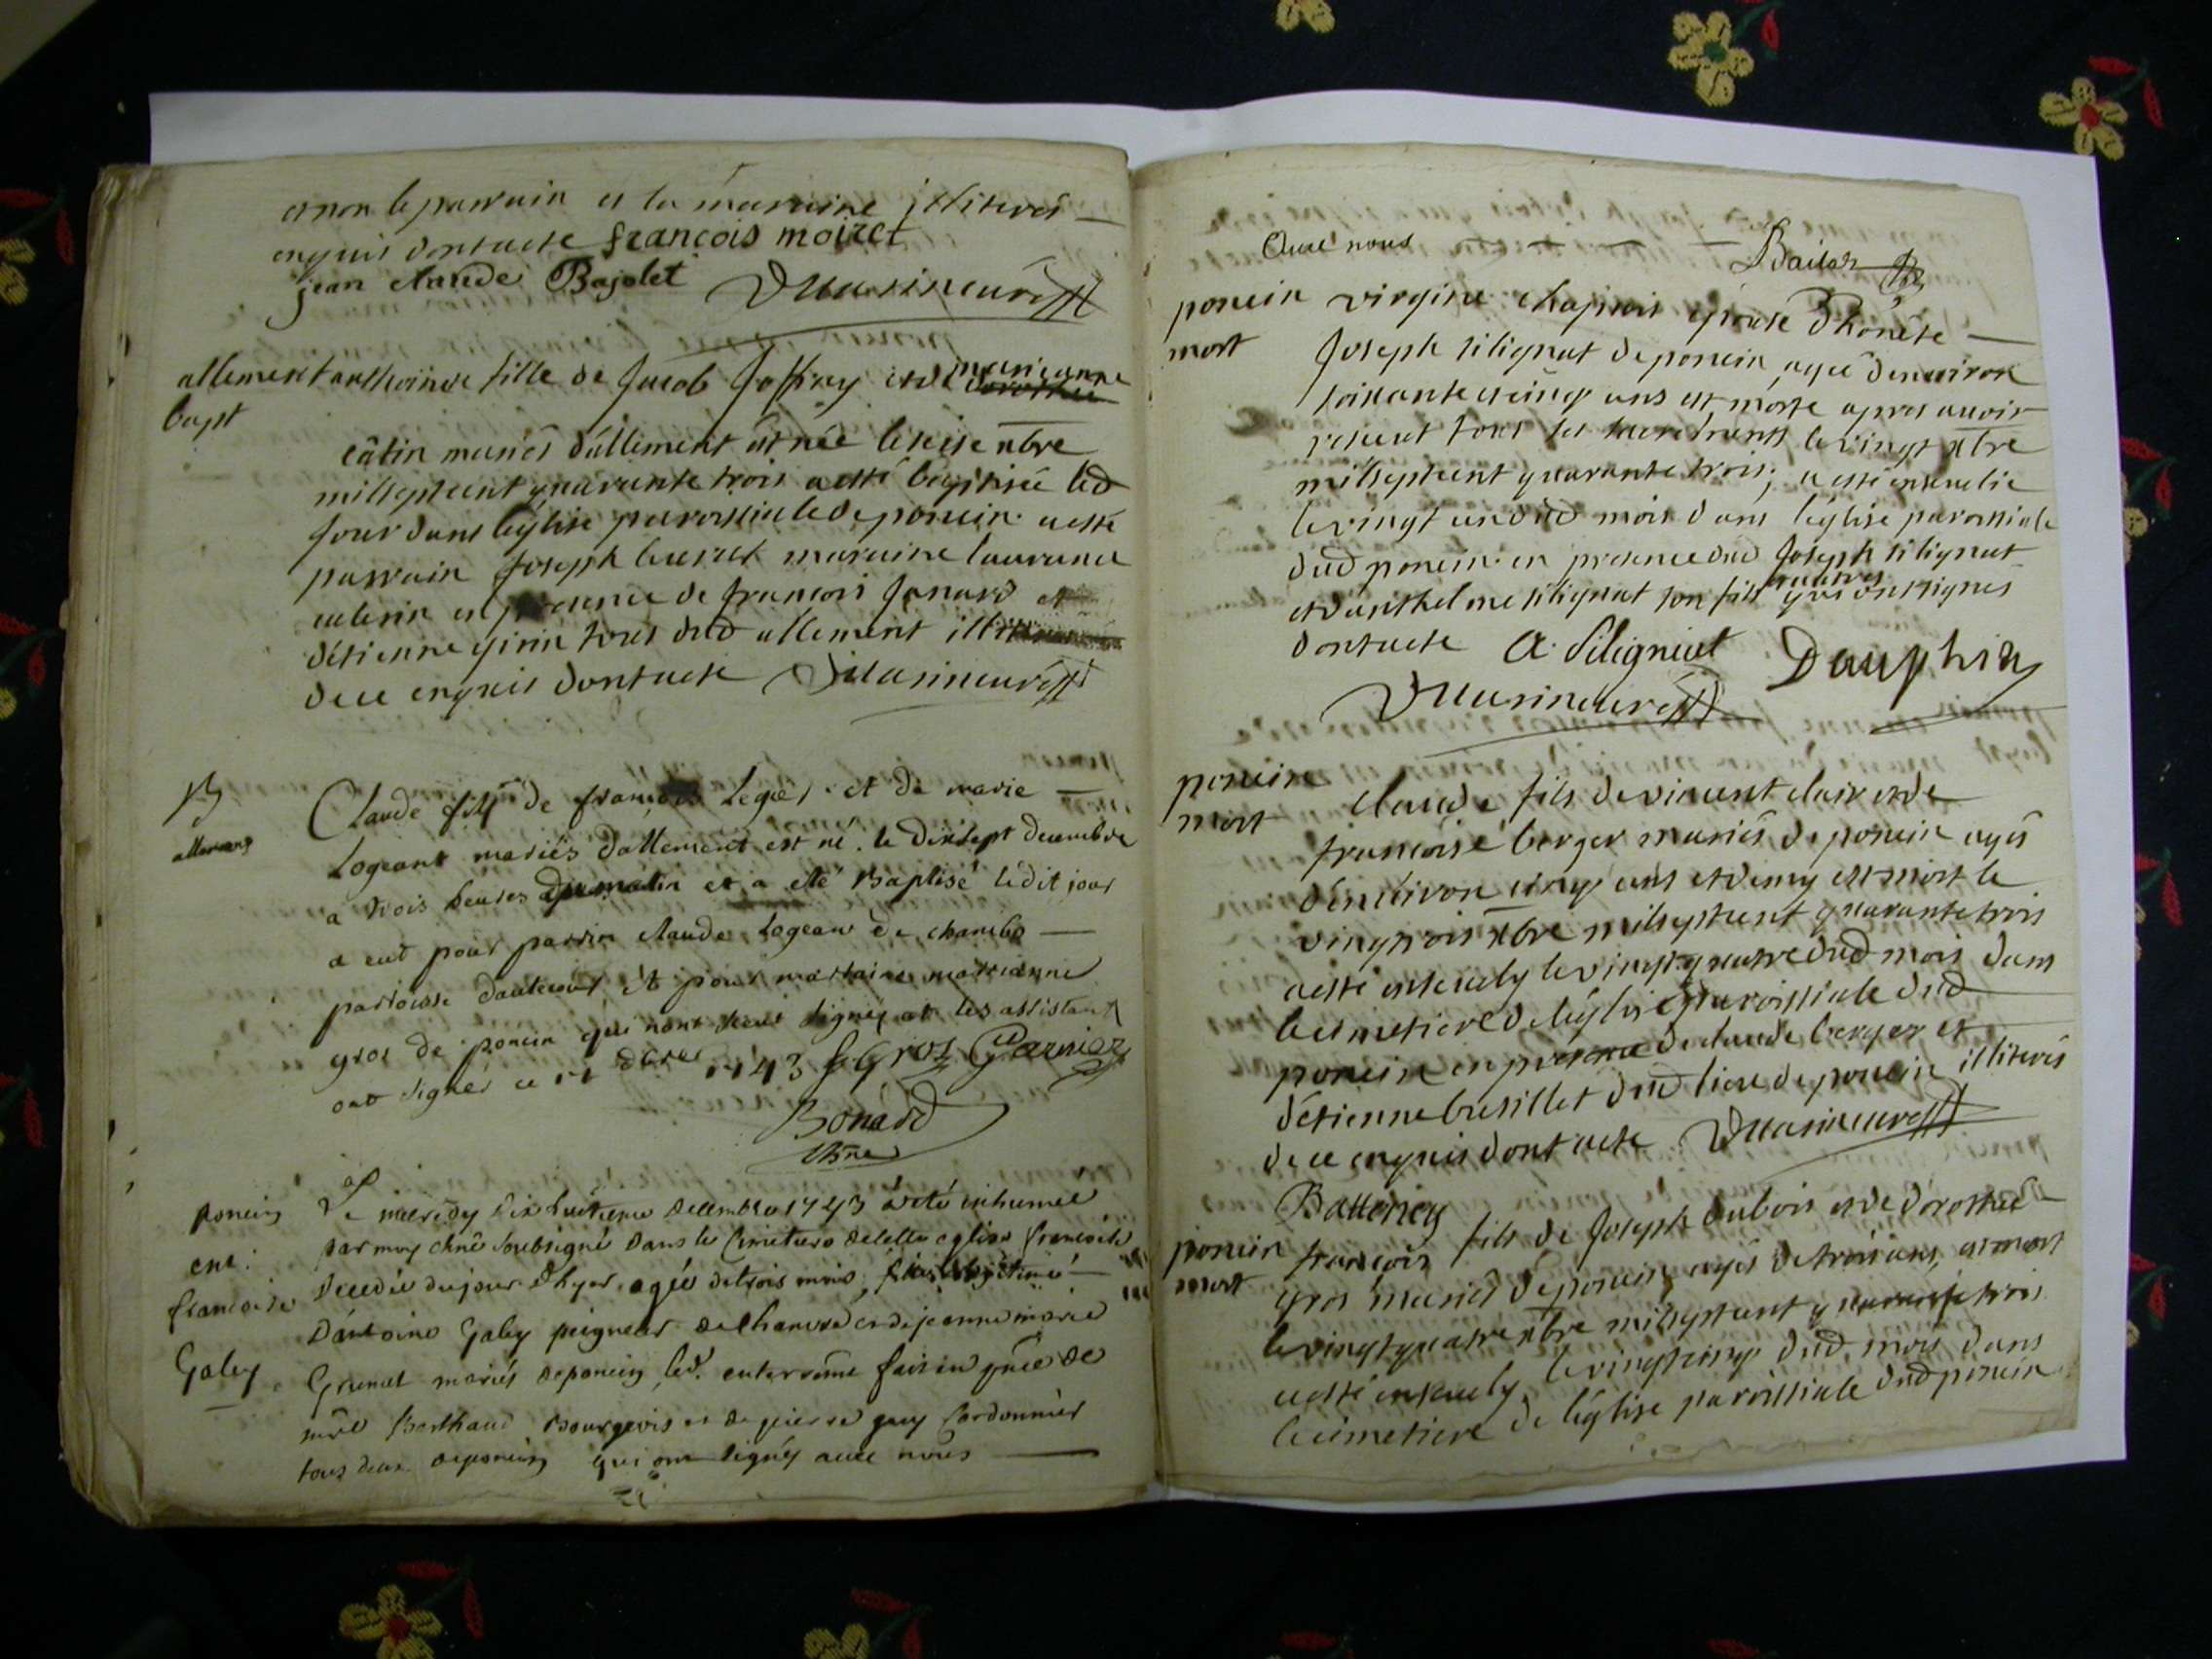 et non le parrain et la maraine illiterés
enquis dont acte françois moiret
jean claude Bajolet
allement anthoinete fille de Jacob Joffray et de marieanne
bapt
câtin mariés d'allement est née le seise xbre
mil sept cent quarante trois a esté baptisée led
jour dans l'église parroissiale de poncin a esté
parrain Joseph maraine
en presence de françois Janard et
d'étienne tous dud allement
de ce enquis dont acte
B
allement
Claude fils de françois Leger et de marie
Logeant mariés d'allement est né le dixsept decembre
a trois heures du matin et a eté Baptisé ledit jour
a eut pour parrin claude Logeant de
parroisse et pour marraine marianne
gros de poncin qui n'ont sceut signés et les assistant
ont signés ce 17 dbre 1743 Gros Garnier
Bonard
Poncin
ent.
francoise
Galey
Le mecredy dix huitieme decembre 1743 a été inhumée
par moy soubsigné dans le Cimetiere de cette eglise francoise
decedée du jour d'hyer agée de trois mois, fille legitime
D'antoine Galey peigneur de chanvre et de jeanne marie
Grumet mariés de poncin, led. enterremt fait en pnce de
Berthaud Bourgeois et de pierre guy Cordonnier
tous deux de poncin qui ont signés avec nous
Avec nous
poncin
mort
virgine épouse d'honête
Joseph silignat de poncin agée d'environ
soixante et cinq ans est morte apres avoir
receut tous les sacrements le vingt xbre
mil sept cent quarante trois, a esté ensevelie
le vingt un dud mois dans l'église paroissiale
dud poncin en presence dud Joseph silignat
et d'anthelme silignat son fils qui ont signés
dont acte A. Silignat Dauphin
poncin
mort
claude fils de vincent clair et de
francoise berger mariés de poncin agés
d'environ cinq ans et demy est mort le
vingt trois xbre mil sept cent quarante trois
a esté ensevely le vingt quatre dud mois dans
le cimetiere de l'église paroissiale dud
poncin en presence de claude berger et
d'étienne brésillet dud lieu de poncin illiterés
de ce enquis dont acte
poncin
mort
françois fils de Joseph dubois et de dorothée
gros mariés de poncin, agés de trois ans, est mort
le vingt quatre xbre mil sept cent quarante trois
a esté ensevely le vingt cinq dud. mois dans
le cimetiere de l'église paroissiale dud poncin